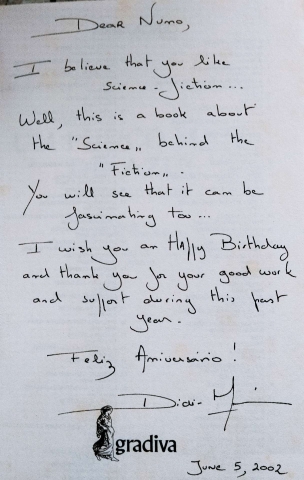 Dear Nuno,
I believe that you like
science-fiction...
Well, this is a book about
the "Science„ behind the
"Fiction„.
You will see that it can be
fascinating too...
I wish you an Happy Birthday
and thank you for your good work
and support during this past
year.
Feliz Aniversário!
Didi-
gradiva
June 5, 2002